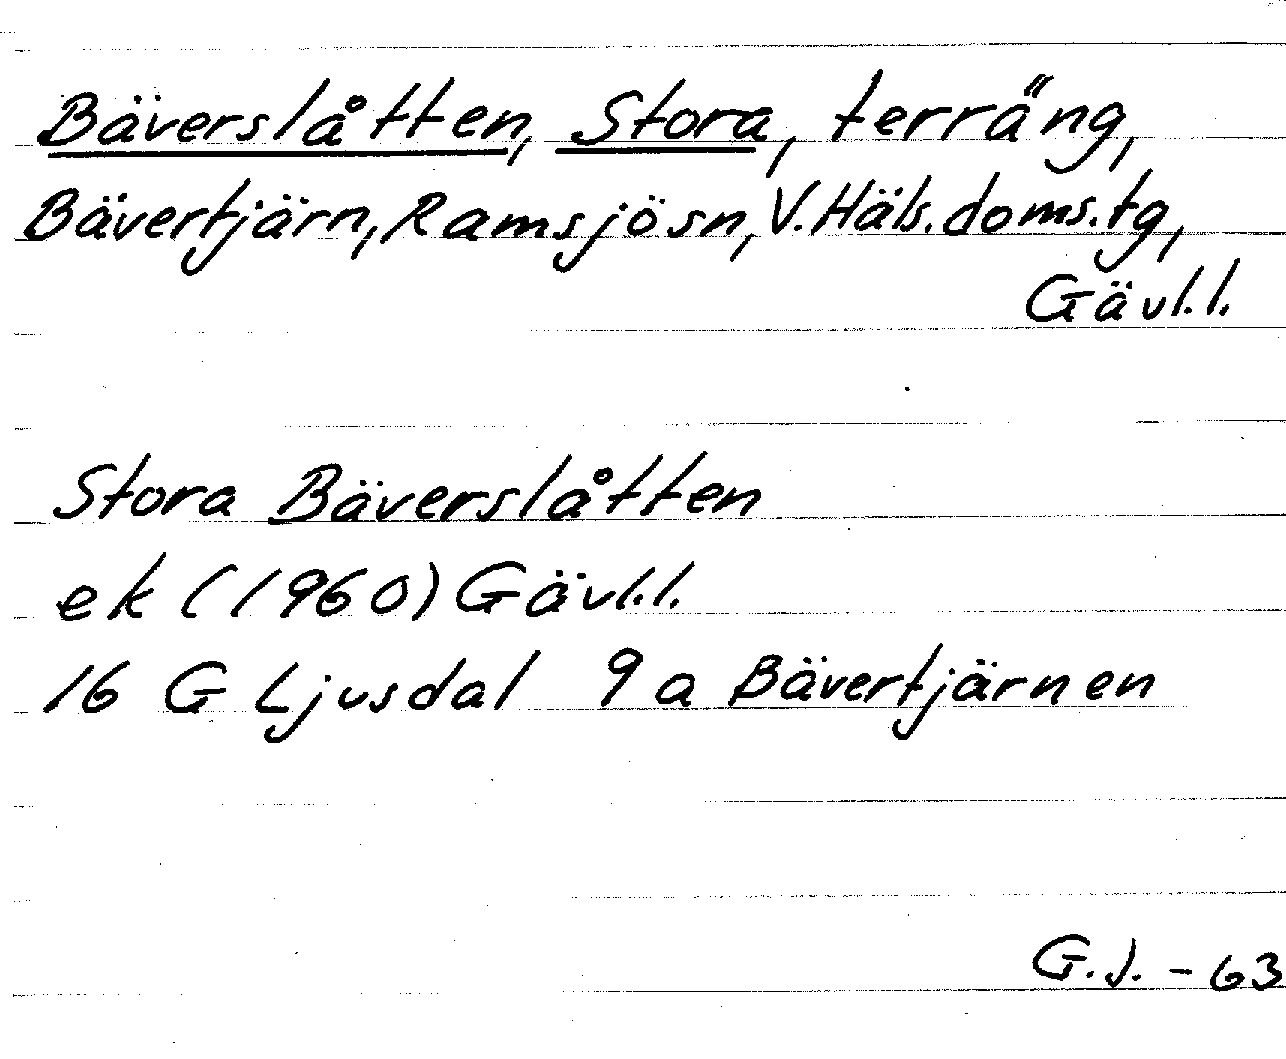 Bäverslåtten, Stora, terräng,
Bävertjärn, Ramsjösn, V. Häls. doms. tg,
Gävl.l.
Stora Bäverslåtten
ek (1960) Gävl.l.
16 G Ljusdal 9 a Bävertjärnen
G.J. - 63